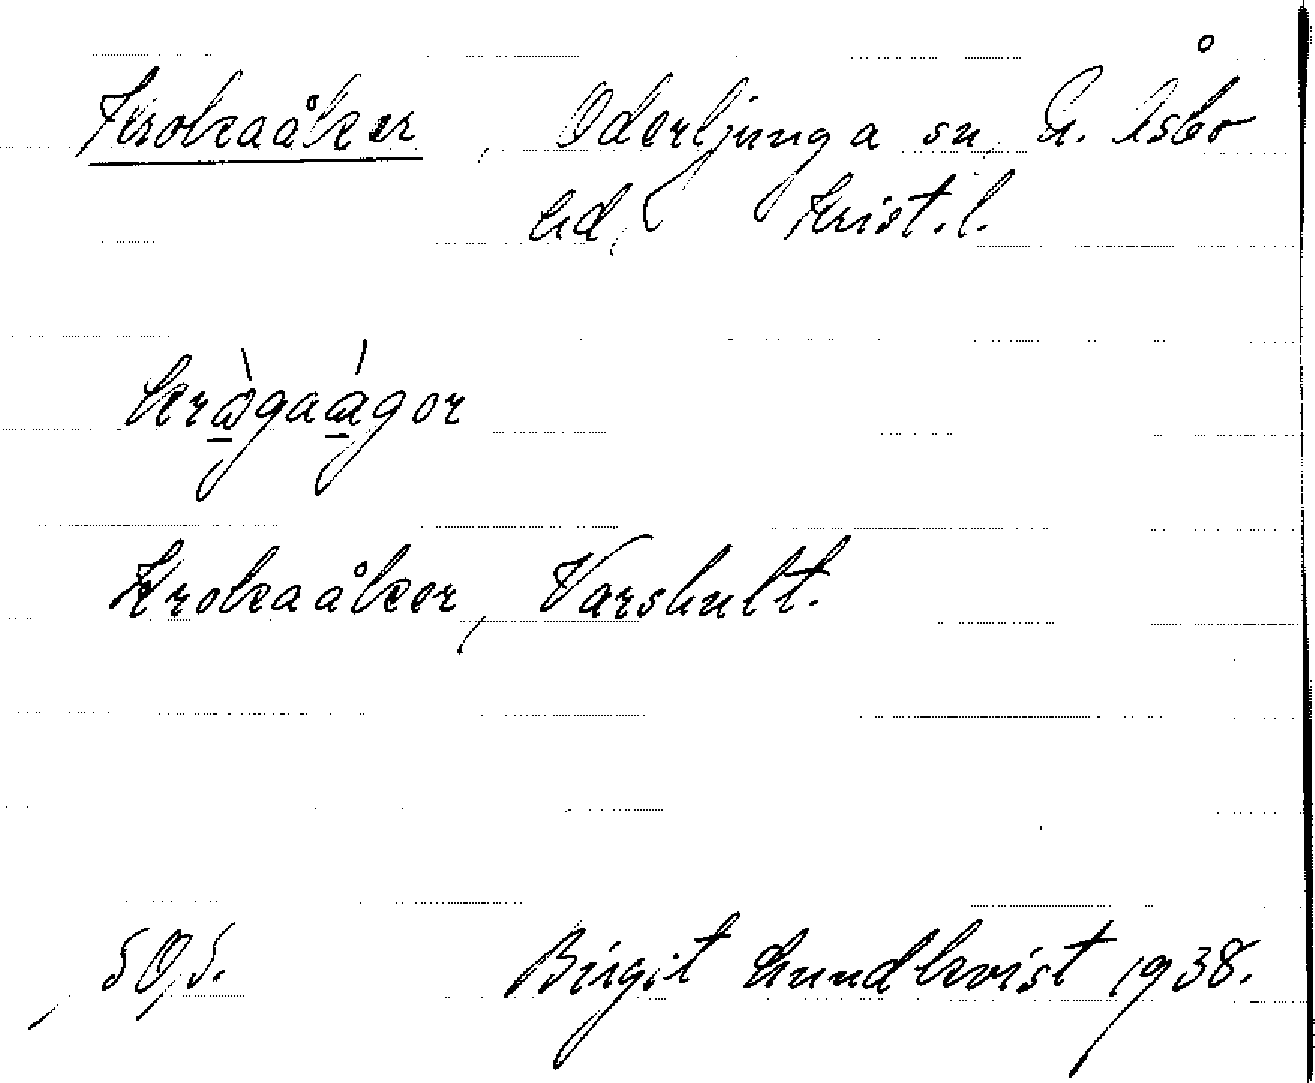 Krokaåker, Oderljunga sn, G. Åsbo
hd, Krist. l.
Krokaåker, Varshult.
Birgit Lundkvist 1938.